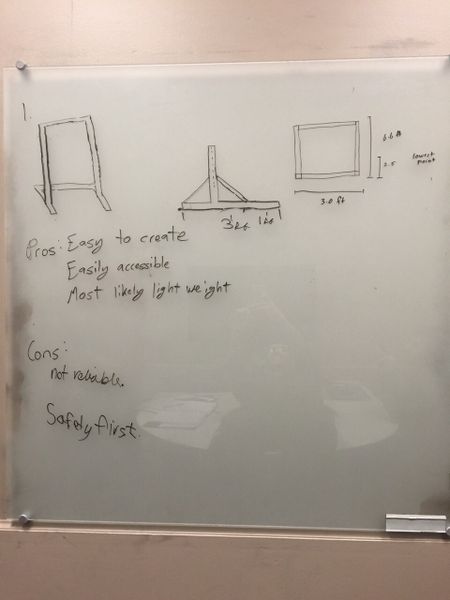 1.
6.6 ft
2.5
lowest point
3.0 ft
3 ft 1 ft
Pros: Easy to create
Easily accessible
Most likely light weight
Cons:
not reliable.
Safety first.